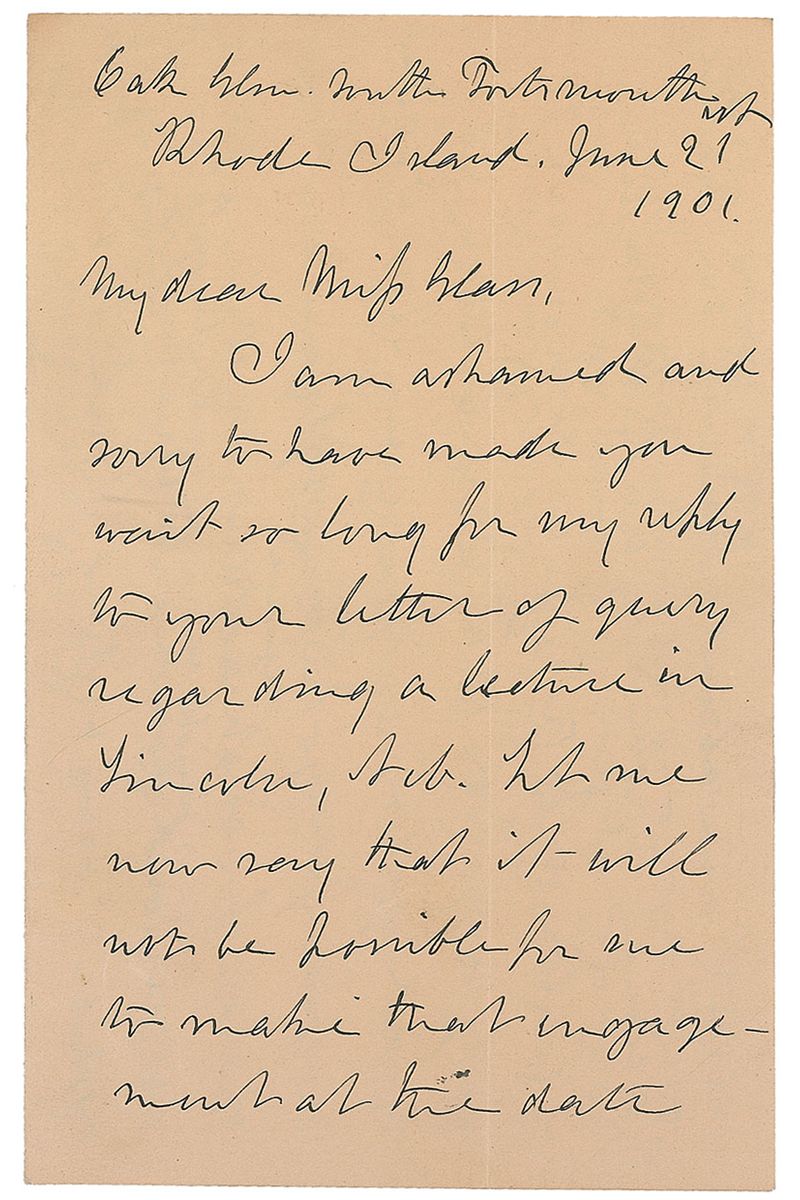 Oak Glen. South Portsmouth
Rhode Island. June 21st
1901.
My dear Miss Glass,
I am ashamed and
sorry to have made you
wait so long for my reply
to your letter of query
regarding a lecture in
Lincoln, Neb. Let me
now say that it will
not be possible for me
to make that engage-
ment at the date